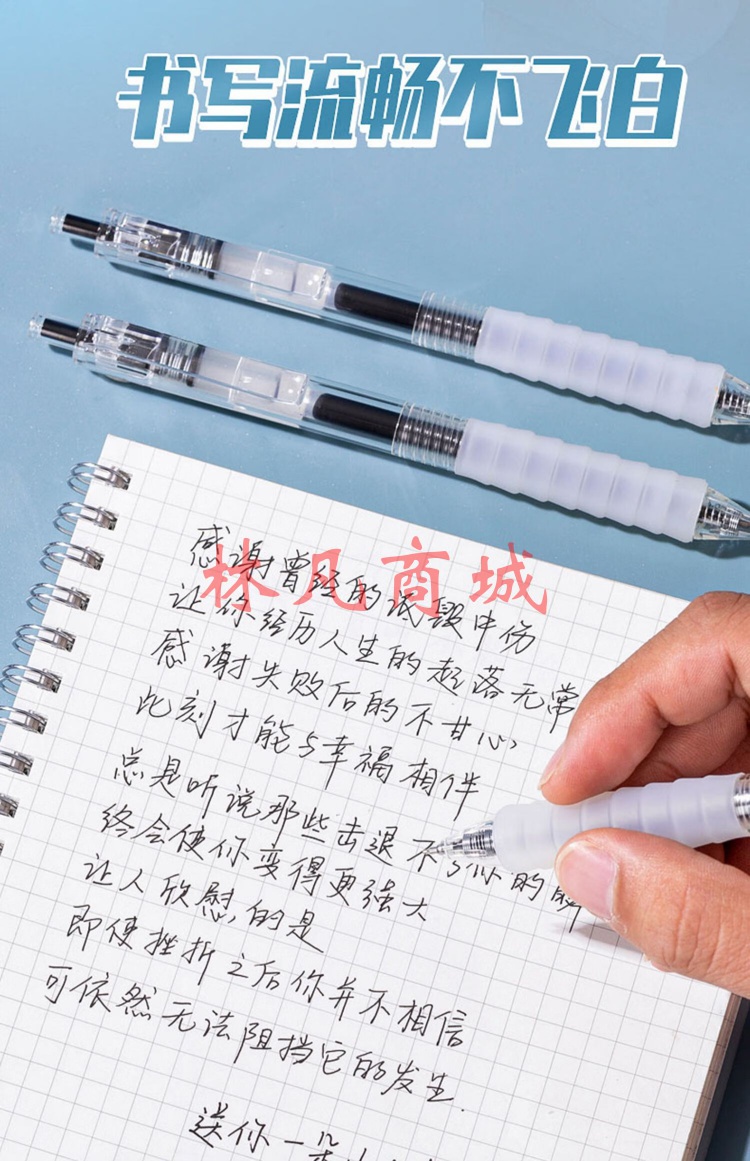 书写流畅不飞白
感谢曾经的诋毁中伤
林凡商城
让你经历人生的起落无常
感谢失败后的不甘心
此刻才能与幸福相伴
总是听说那些击退不了你的
终会使你变得更强大
让人欣慰的是
即使挫折之后你并不相信
可依然无法阻挡它的发生.
送你一朵小